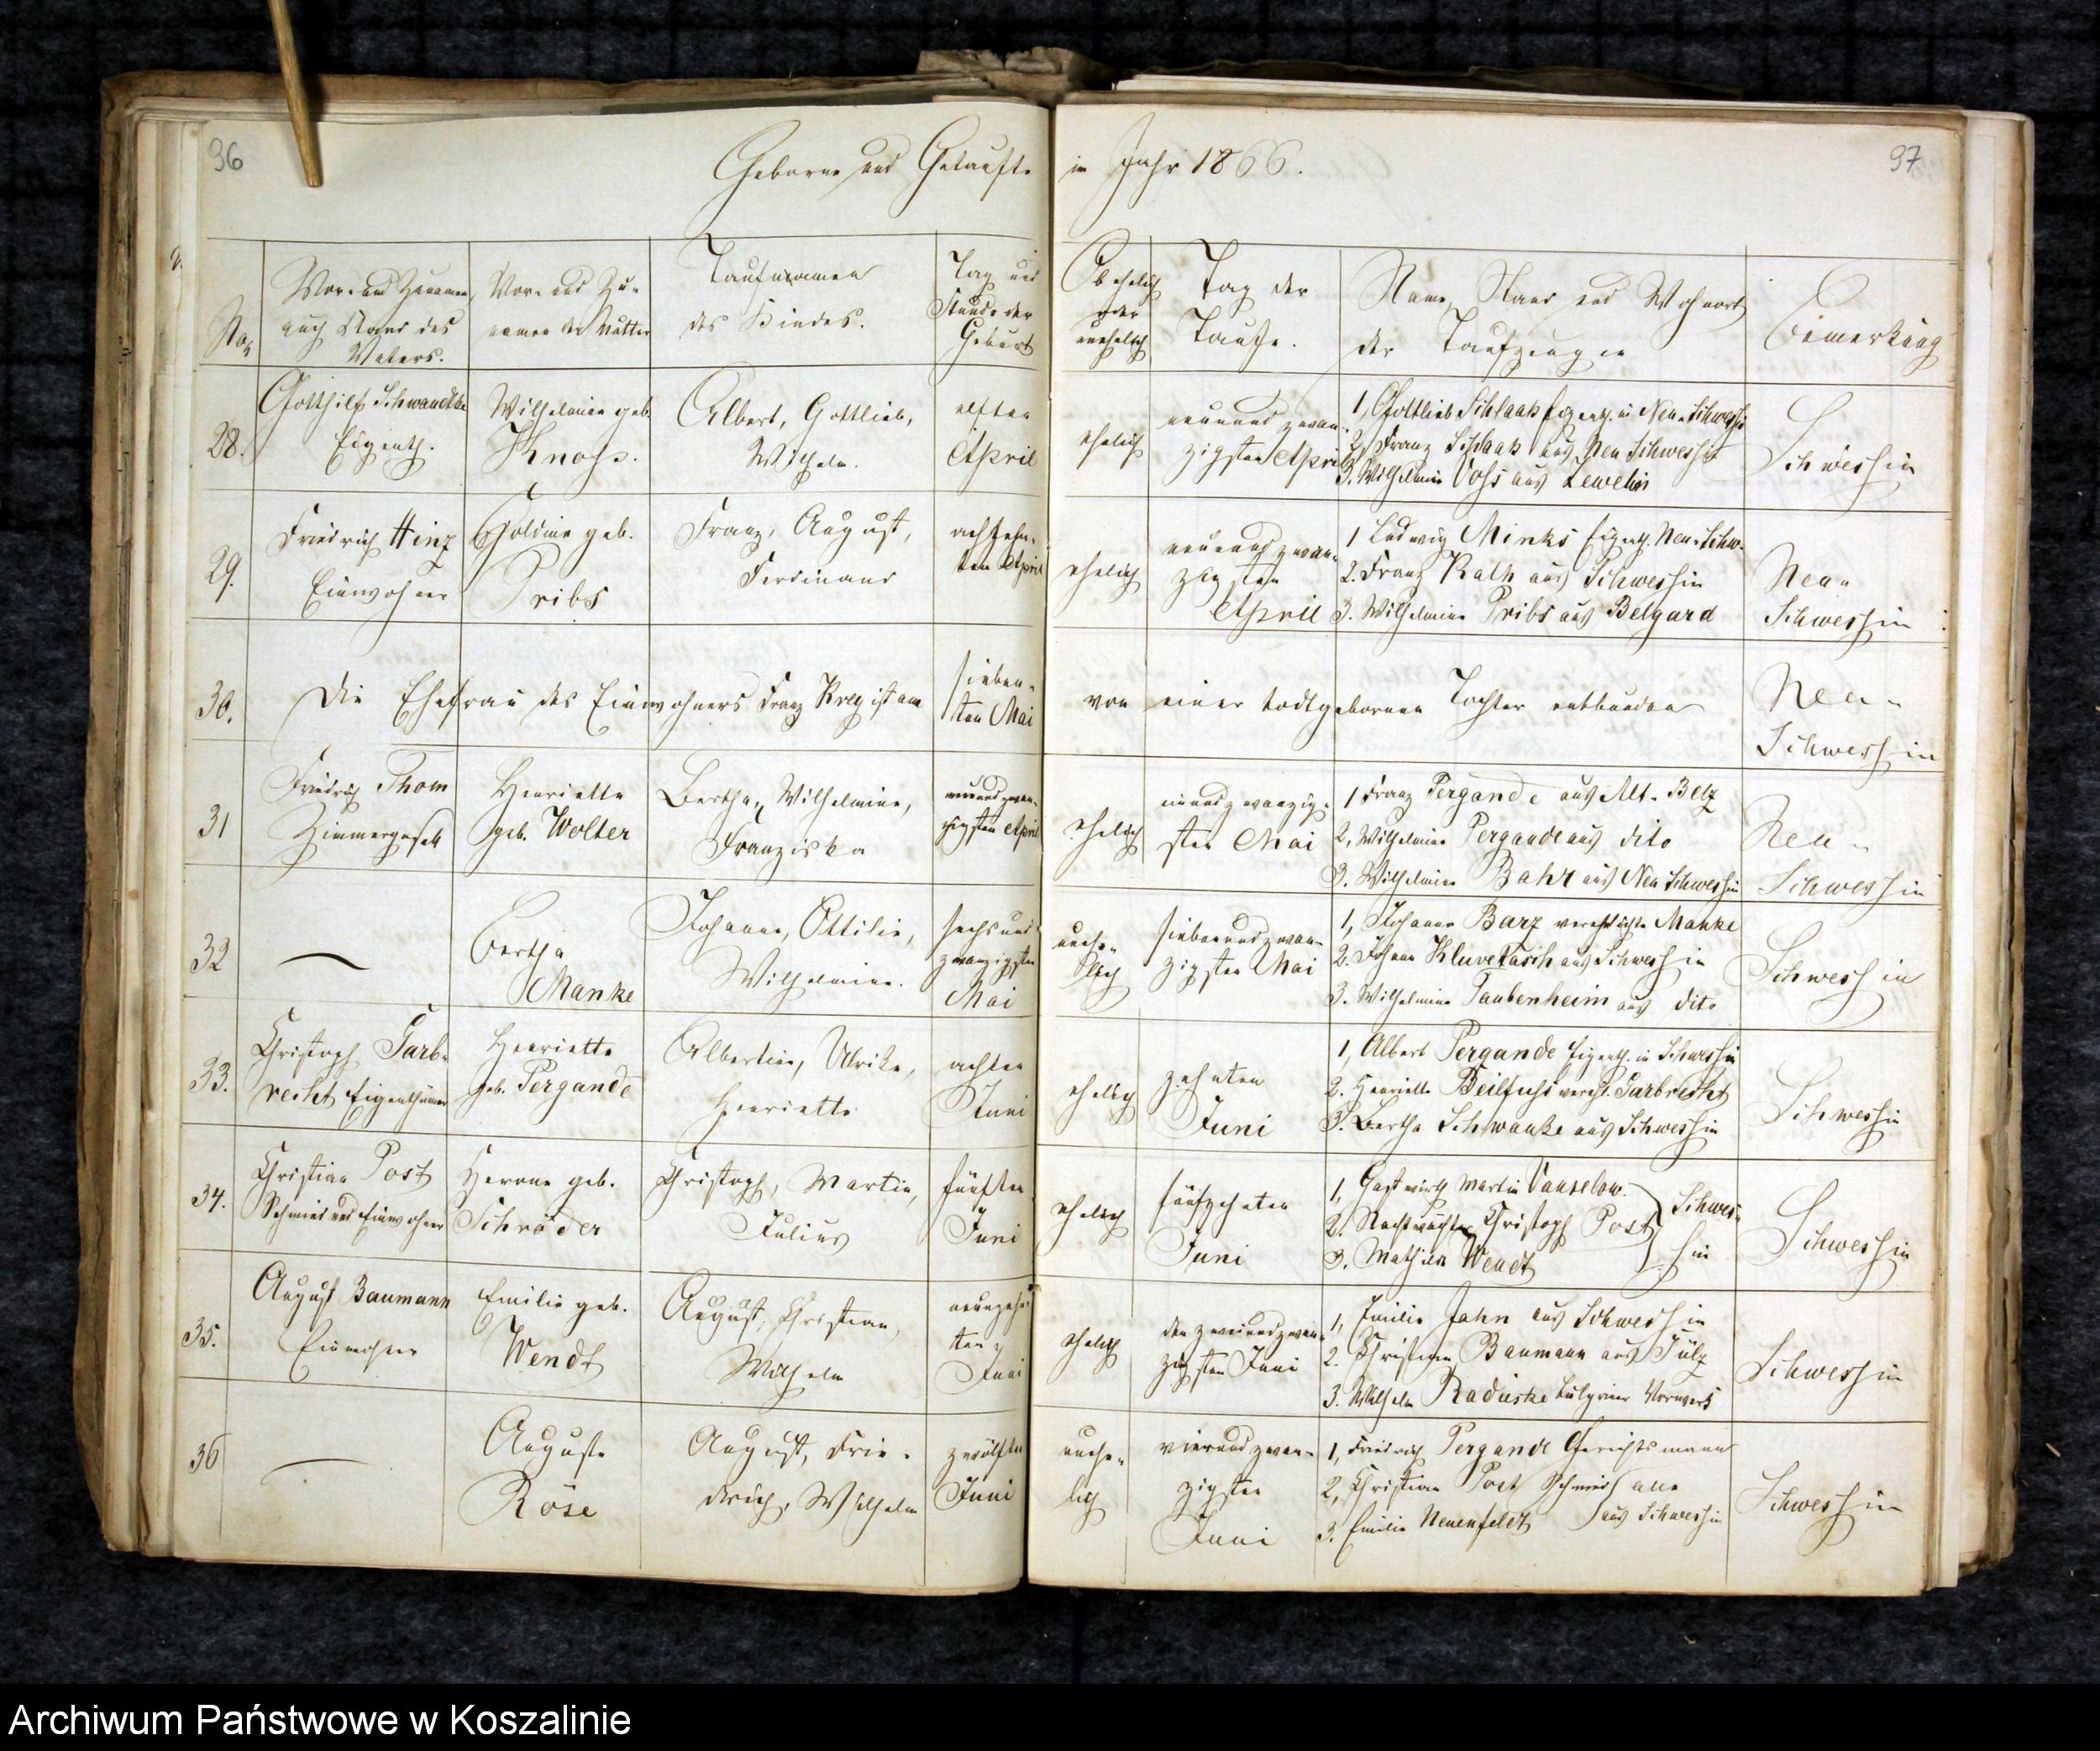 96
Geborne und Getaufte
im Jahr 1866.
97
No.
Vor- und Zunamen,
auch Stand des
Vaters.
Vor- und Zu-
namen der Mutter
Taufnamen
des Kindes.
Tag und
Stunde der
Geburt
Ob ehelich
oder
unehelich
Tag der
Taufe.
Name, Stand und Wohnort
der Taufzeugen
Bemerkung
28.
Gotthilf Schwandtke
Eigenth.
Wilhelmine geb.
Knoß.
Albert, Gottlieb,
Wilhelm.
elften
April
ehelich
neunundzwan-
zigsten April
1, Gottlieb Schlaak Eigenth. in Neu-Schwessin
2, Franz Schlaak aus Neu Schwessin
3. Wilhelmine Voss aus Zewelin
Schwessin
29.
Friedrich Hinz
Einwohner
geb.
Pribs
Franz, August,
Ferdinand
achtzehn-
ten April
ehelich
neunundzwan-
zigsten
April
1 Ludwig Minks Eigenth. Neu-Schw.
2. Franz Rath aus Schwessin
3. Wilhelmine Pribs aus Belgard
Neu-
Schwessin
30.
Die Ehefrau des Einwohners Franz Krey ist am
sieben-
ten Mai
von einer todtgebornen Tochter entbunden
Neu-
Schwessin
31
Friedrich Thom
Zimmergesell
Henriette
geb. Wolter
Bertha, Wilhelmine,
Franziska
neunundzwan-
zigsten April
ehelich
einundzwanzig-
sten Mai
1 Franz Pergande aus Alt-Belz
2, Wilhelmine Pergande aus dito
3. Wilhelmine Bahr aus Neu Schwessin
Neu-
Schwessin
32
Bertha
Manke
Johanne, Ottilie,
Wilhelmine.
sechsund-
zwanzigsten
Mai
unehe-
lich
siebenundzwan-
zigsten Mai
1, Johanne Barz verehelichte Manke
2. Johann aus Schwessin
3. Wilhelmine Taubenheim aus dito
Schwessin
33.
Christoph Garb-
recht Eigenthümer
Henriette
geb. Pergande
Albertine, Ulrike,
Henriette
achten
Juni
ehelich
zehnten
Juni
1, Albert Pergande Eigenth. in Schwessin
2. Henriette Beilfuss verehl. Garbrecht
3. Bertha Schwanke aus Schwessin
Schwessin
34.
Christian Post
Schmied und Einwohner
geb.
Schröder
Christoph, Martin,
Julius
fünften
Juni
ehelich
fünfzehnten
Juni
1, Gastwirth Martin Vanselow.
2. Nachtwächter Christoph Post
3. Mathilde Wendt
Schwes-
sin
Schwessin
35.
August Baumann
Einwohner
Emilie geb.
Wendt
August, Christian,
Wilhelm
neunzehn-
ten
Juni
ehelich
den zweiundzwan-
zigsten Juni
1, Emilie Jahn aus Schwessin
2. Christian Baumann aus
3. Wilhelm Vorwerk
Schwessin
36
Auguste
Röse
August, Frie-
drich, Wilhelm
zwölften
Juni
unehe-
lich
vierundzwan-
zigsten
Juni
1, Friedrich Pergande Gerichtsmann
2, Christian Post Schmied alle
3. Emilie Neuenfeldt aus Schwessin
Schwessin
Archiwum Państwowe w Koszalinie